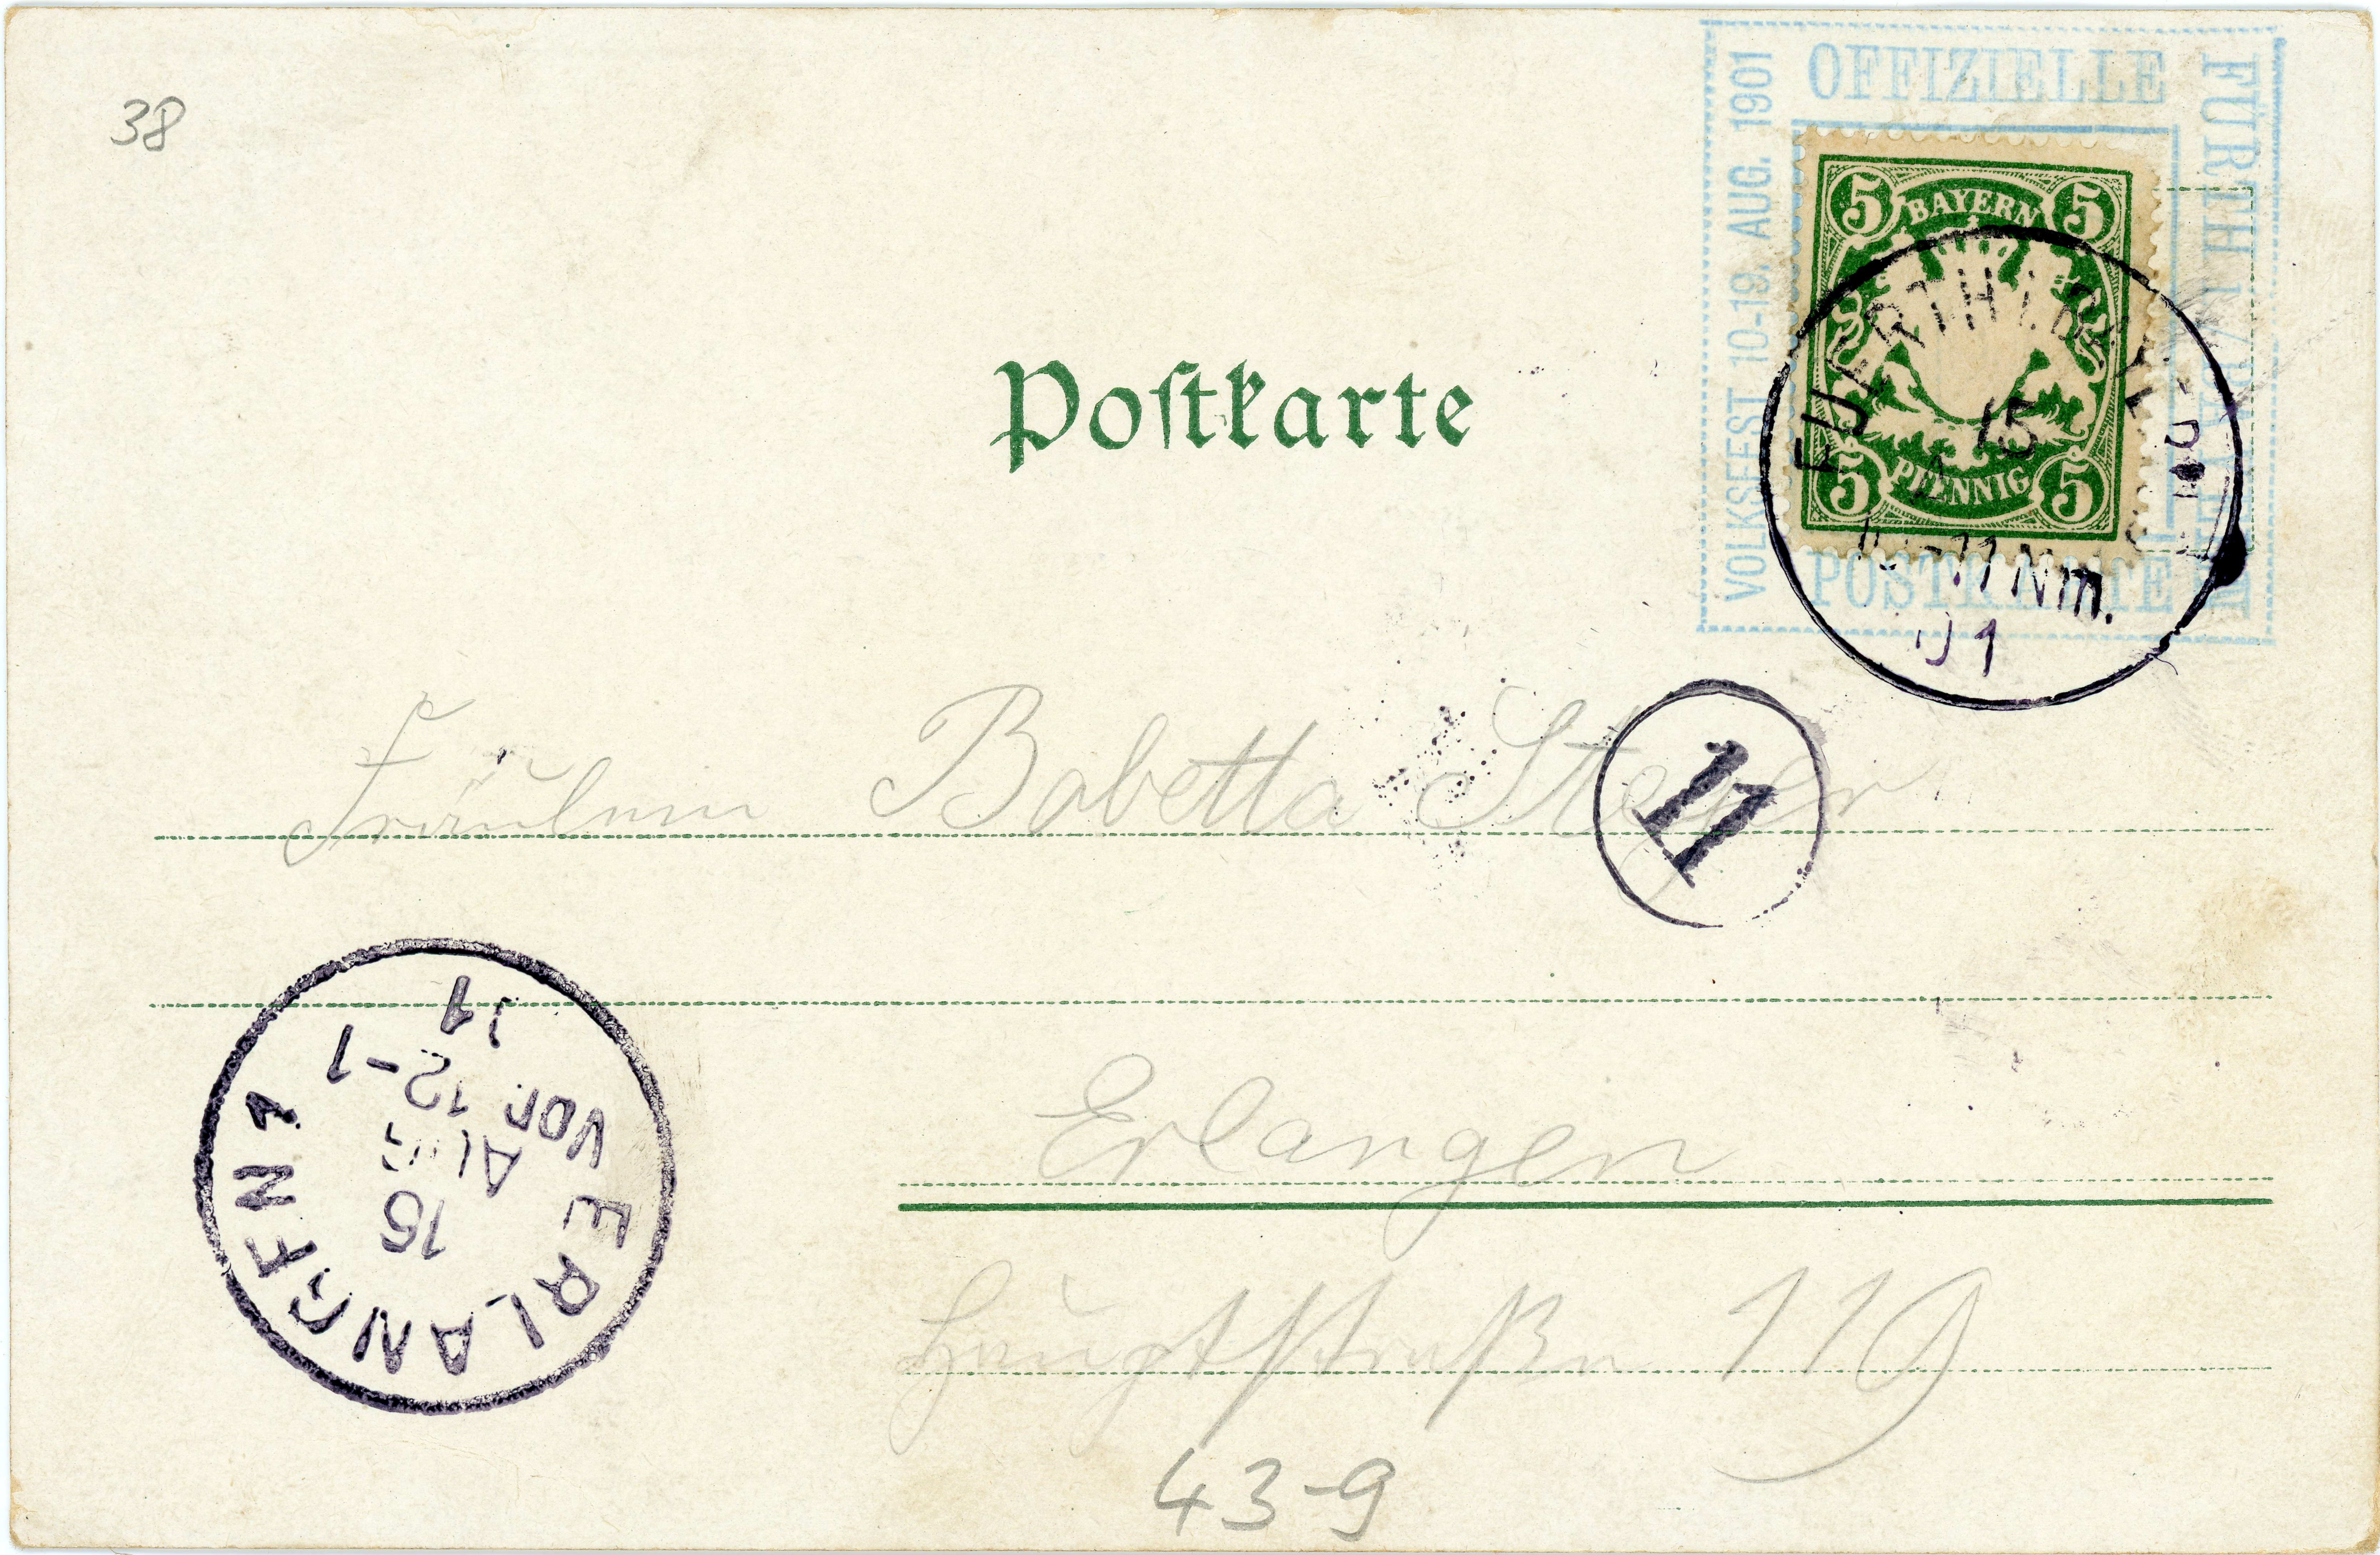 38
OFFIZIELLE
FÜRTH I/BAYERN
VOLKSFEST 10-19. AUG. 1901
POSTKARTE
5 BAYERN 5
5 PFENNIG 5
FUERTH I. BAY.
15
-11 Nm.
01
Postkarte
Fräulein Babetta
17
ERLANGEN 1
15
AUG
Vor. 12-1
01
Erlangen
Hauptstraße 119
43-9